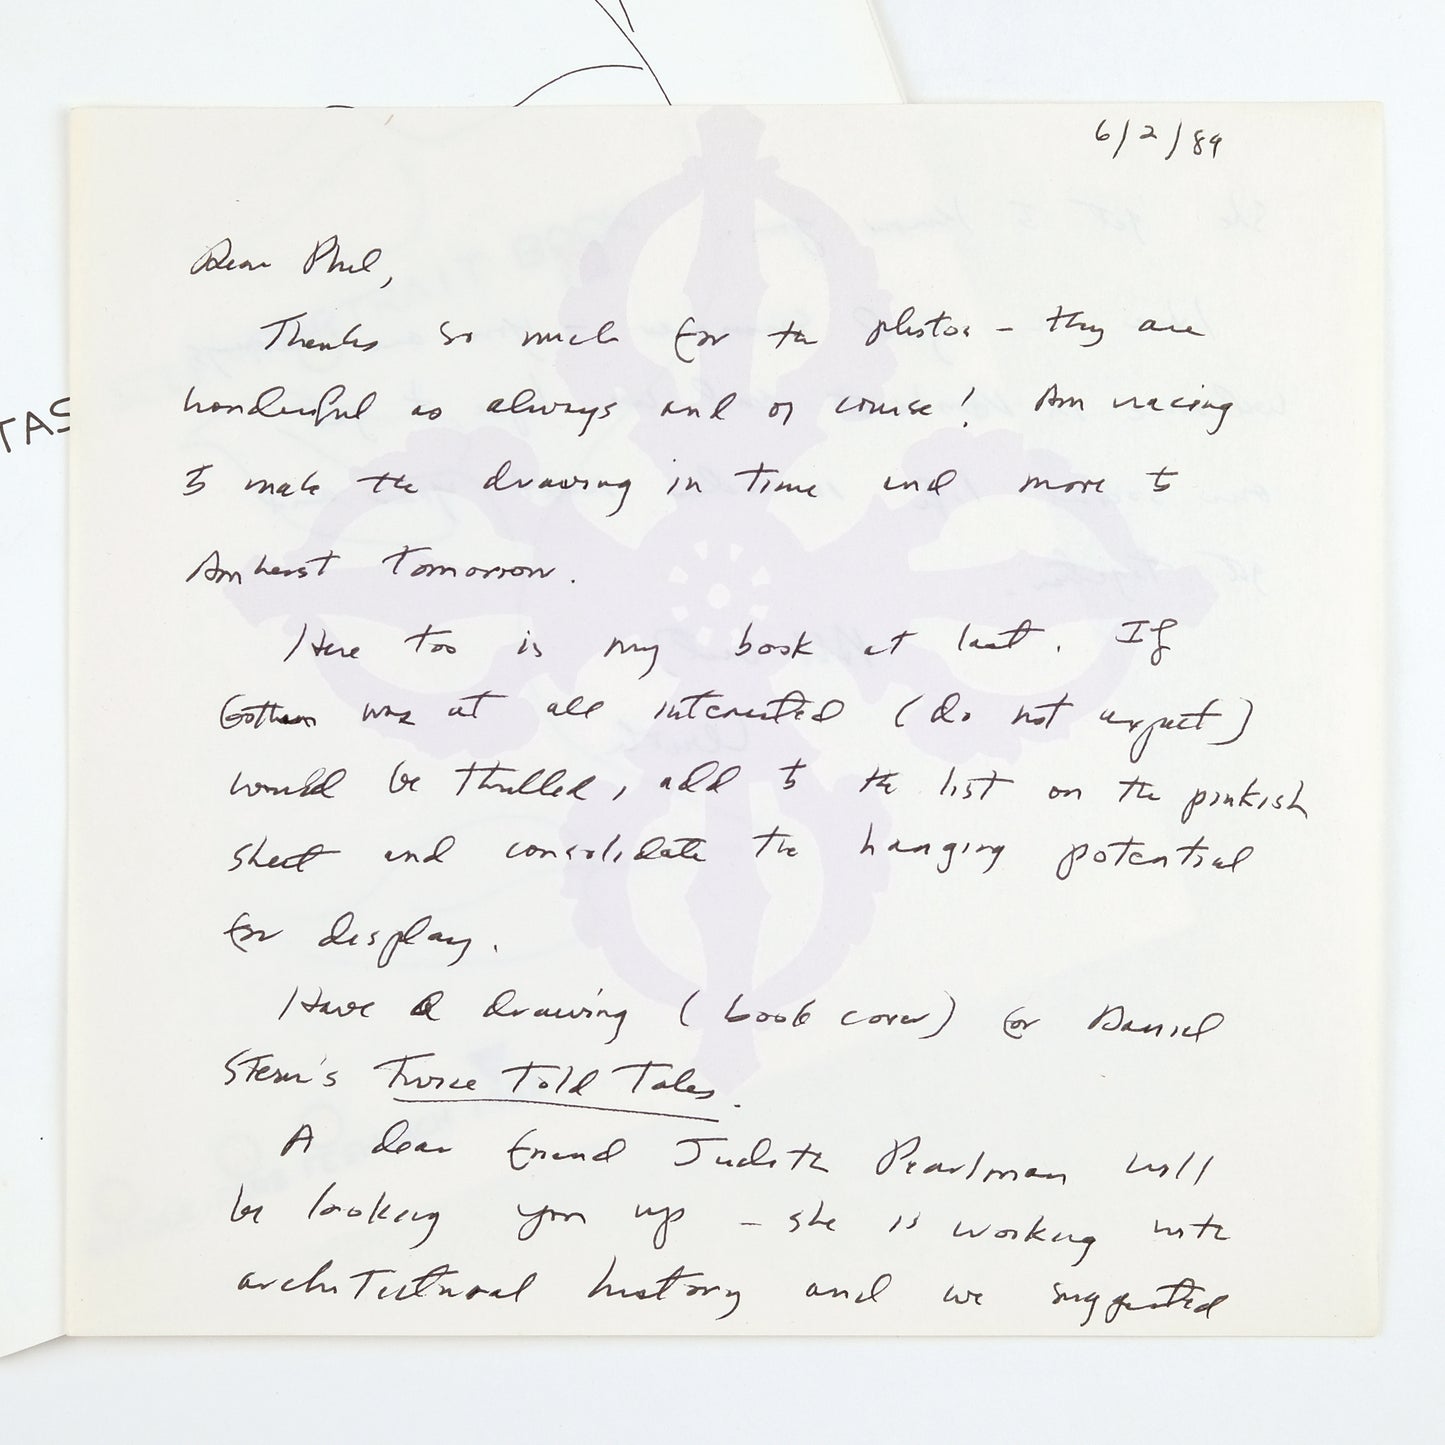 6/2/89
Dear Phil,
Thanks so much for the photos – they are
wonderful as always and of course! Am racing
to make the drawing in time and more to
Amherst tomorrow.
Here too is my book at last. If
Gotham was at all interested (do not expect)
would be thrilled, add to the list on the pinkish
sheet and consolidate the hanging potential
for display.
Have a drawing (book cover) for Daniel
Stern's Twice Told Tales.
A dear friend Judith Pearlman will
be looking you up – she is working with
architectural history and we suggested
TAS